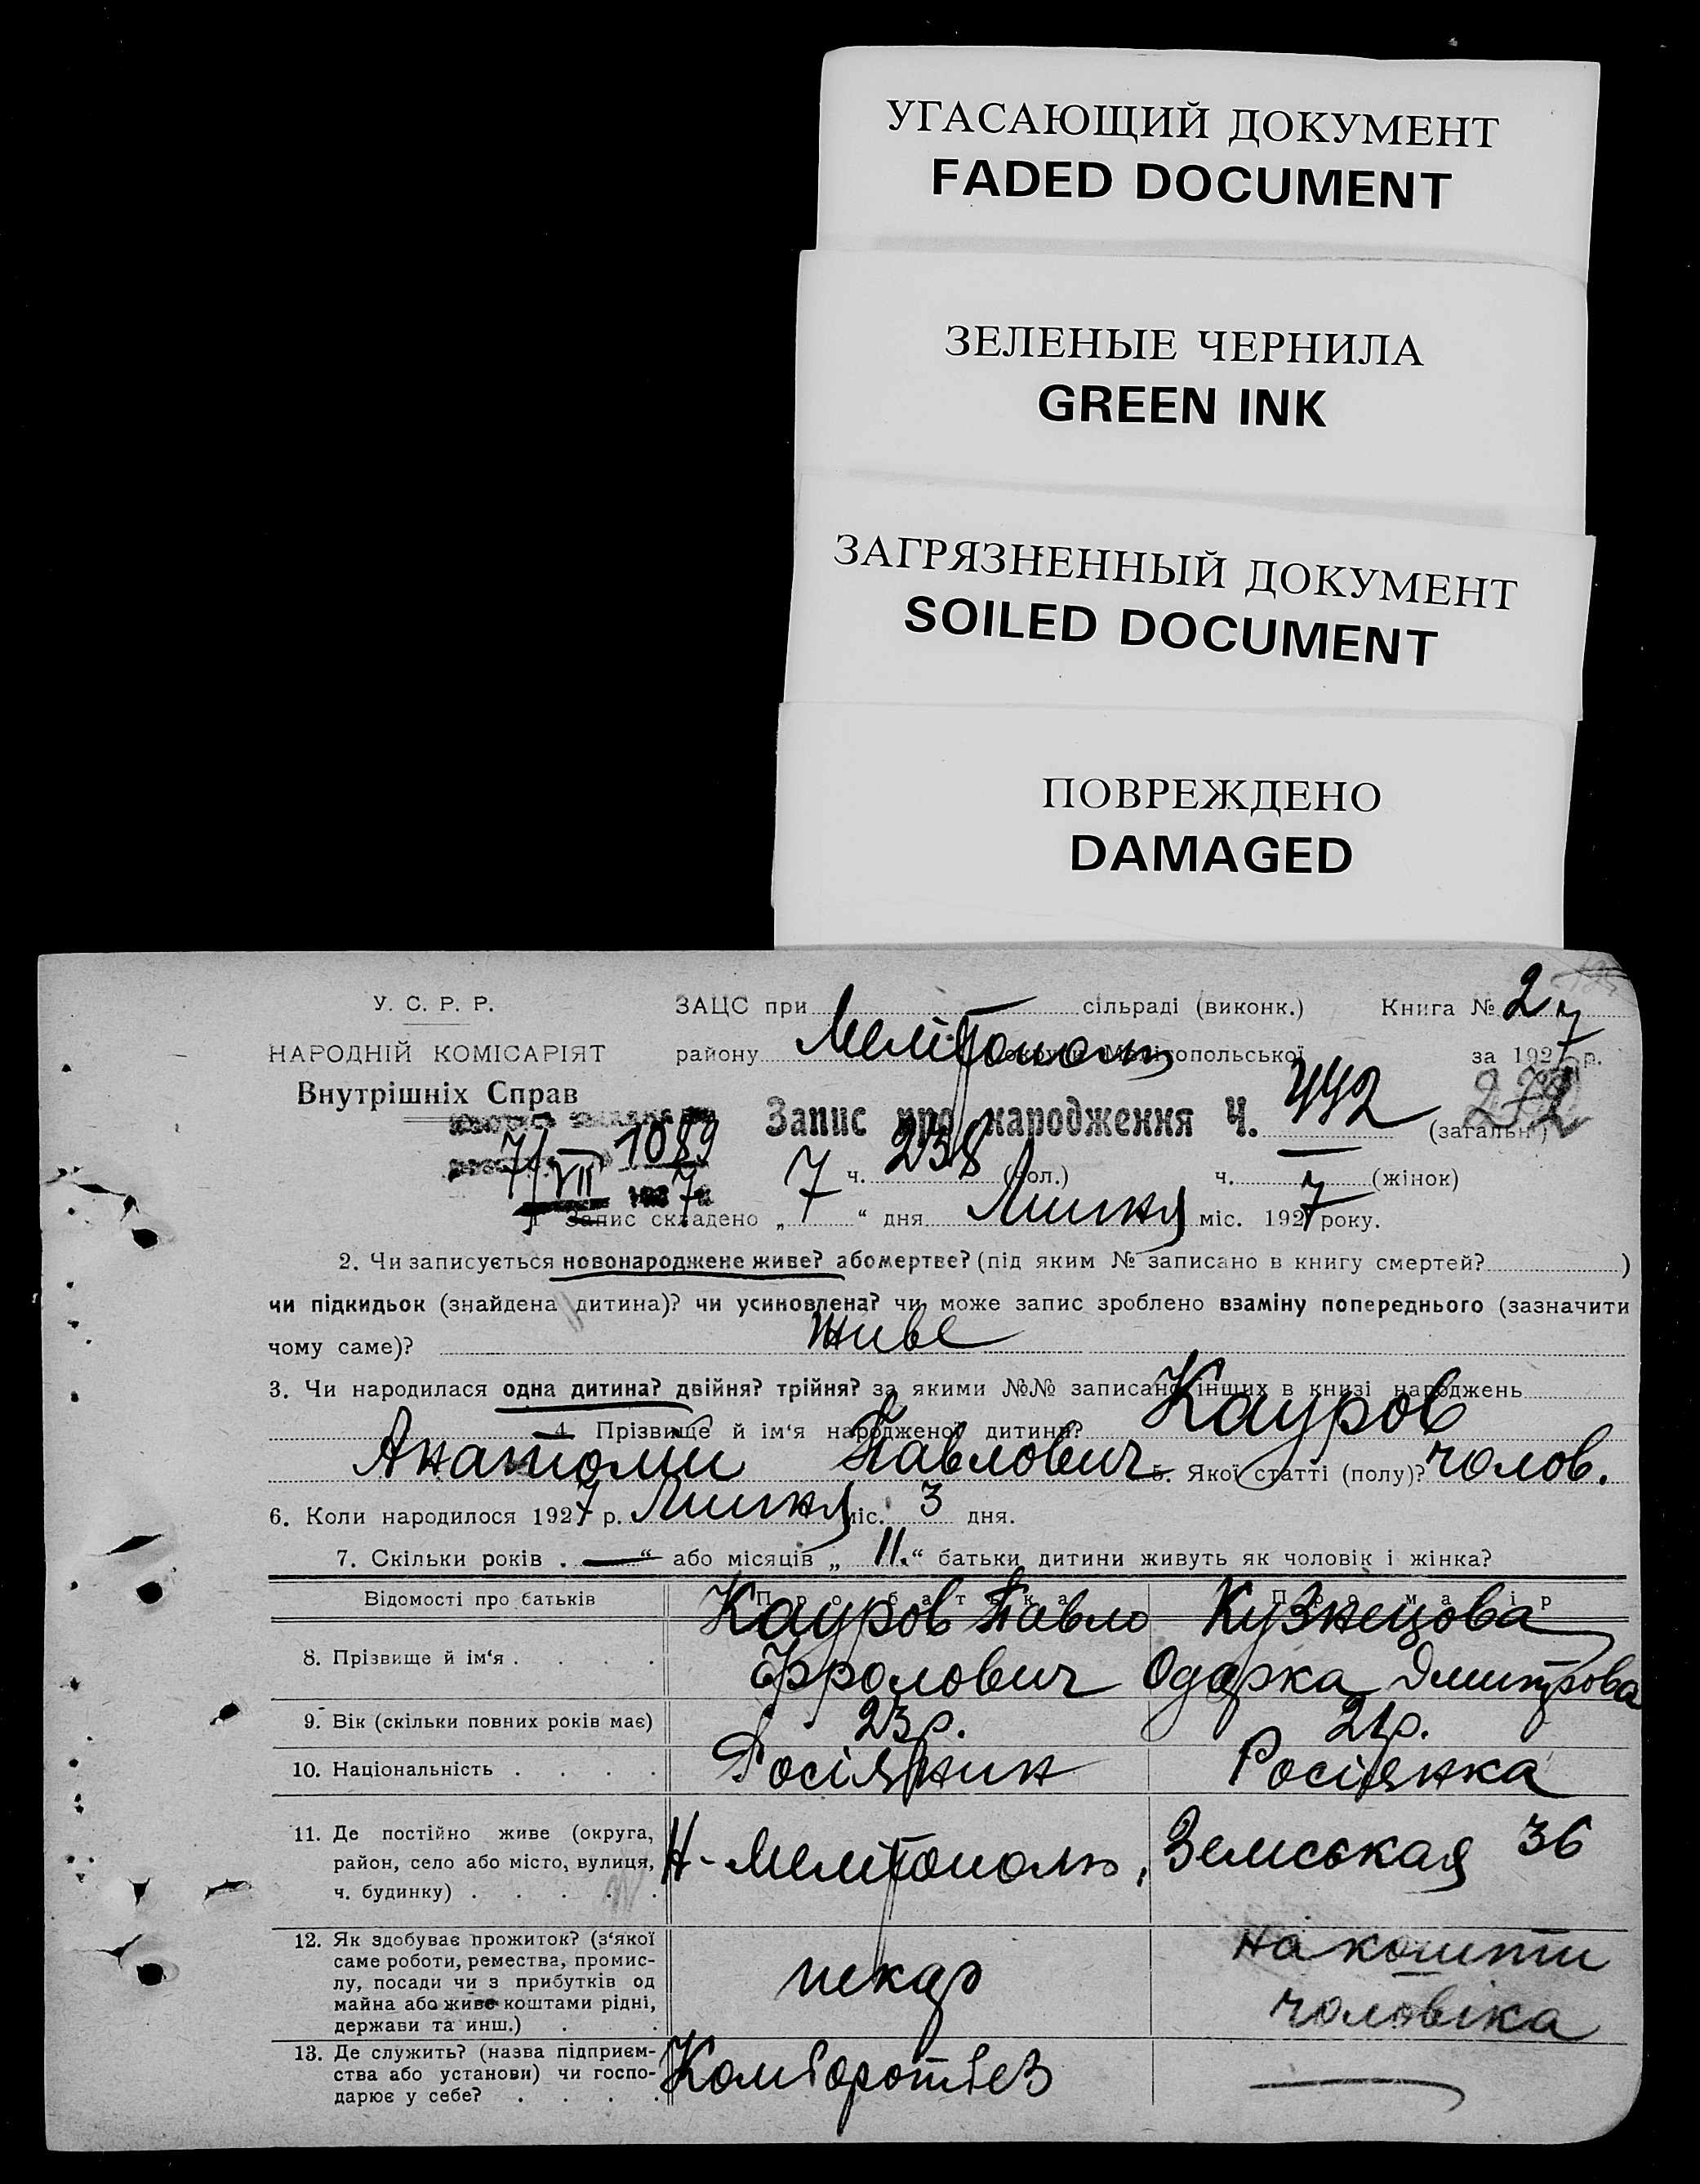 УГАСАЮЩИЙ ДОКУМЕНТ
FADED DOCUMENT
ЗЕЛЕНЫЕ ЧЕРНИЛА
GREEN INK
ЗАГРЯЗНЕННЫЙ ДОКУМЕНТ
SOILED DOCUMENT
ПОВРЕЖДЕНО
DAMAGED
У. С. Р. Р.
НАРОДНІЙ КОМІСАРІЯТ
Внутрішніх Справ
ЗАЦС при сільраді (виконк.) Книга № 2
району Мелітополь округи Мелітопольської за 1927 р.
Запис про народження Ч. 442 (загальн.)
7/VII 1089
1927
7 ч. 238 (чол.) ч. — (жінок)
1 Запис складено „ 7 “ дня Липня міс. 1927 року.
2. Чи записується новонароджене живе? або мертве? (під яким № записано в книгу смертей? )
чи підкидьок (знайдена дитина)? чи усиновлена? чи може запис зроблено взаміну попереднього (зазначити
чому саме)? живе
3. Чи народилася одна дитина? двійня? трійня? за якими №№ записано інших в книзі народжень
4. Прізвище й ім‘я народженої дитини? Кауров
Анатолій Павлович 5. Якої статті (полу)? чолов.
6. Коли народилося 1927 р. Липня міс. 3 дня.
7. Скільки років . — “ або місяців „ 11. “ батьки дитини живуть як чоловік і жінка?
Відомості про батьків Про батька Про матір
8. Прізвище й ім‘я . . . . Кауров Павло Фролович Кузнецова Одарка Дмитрова
9. Вік (скільки повних років має) 23 р. 21 р.
10. Національність . . . . Росіянин Росіянка
11. Де постійно живе (округа,
район, село або місто, вулиця,
ч. будинку) . . . . .
Н-Мелітополь, Земськая 36
12. Як здобуває прожиток? (з‘якої
саме роботи, ремества, промис-
лу, посади чи з прибутків од
майна або живе коштами рідні,
держави та инш.) . .
пекар
на кошти
чоловіка
13. Де служить? (назва підприєм-
ства або установи) чи госпо-
дарює у себе? . . . .
—